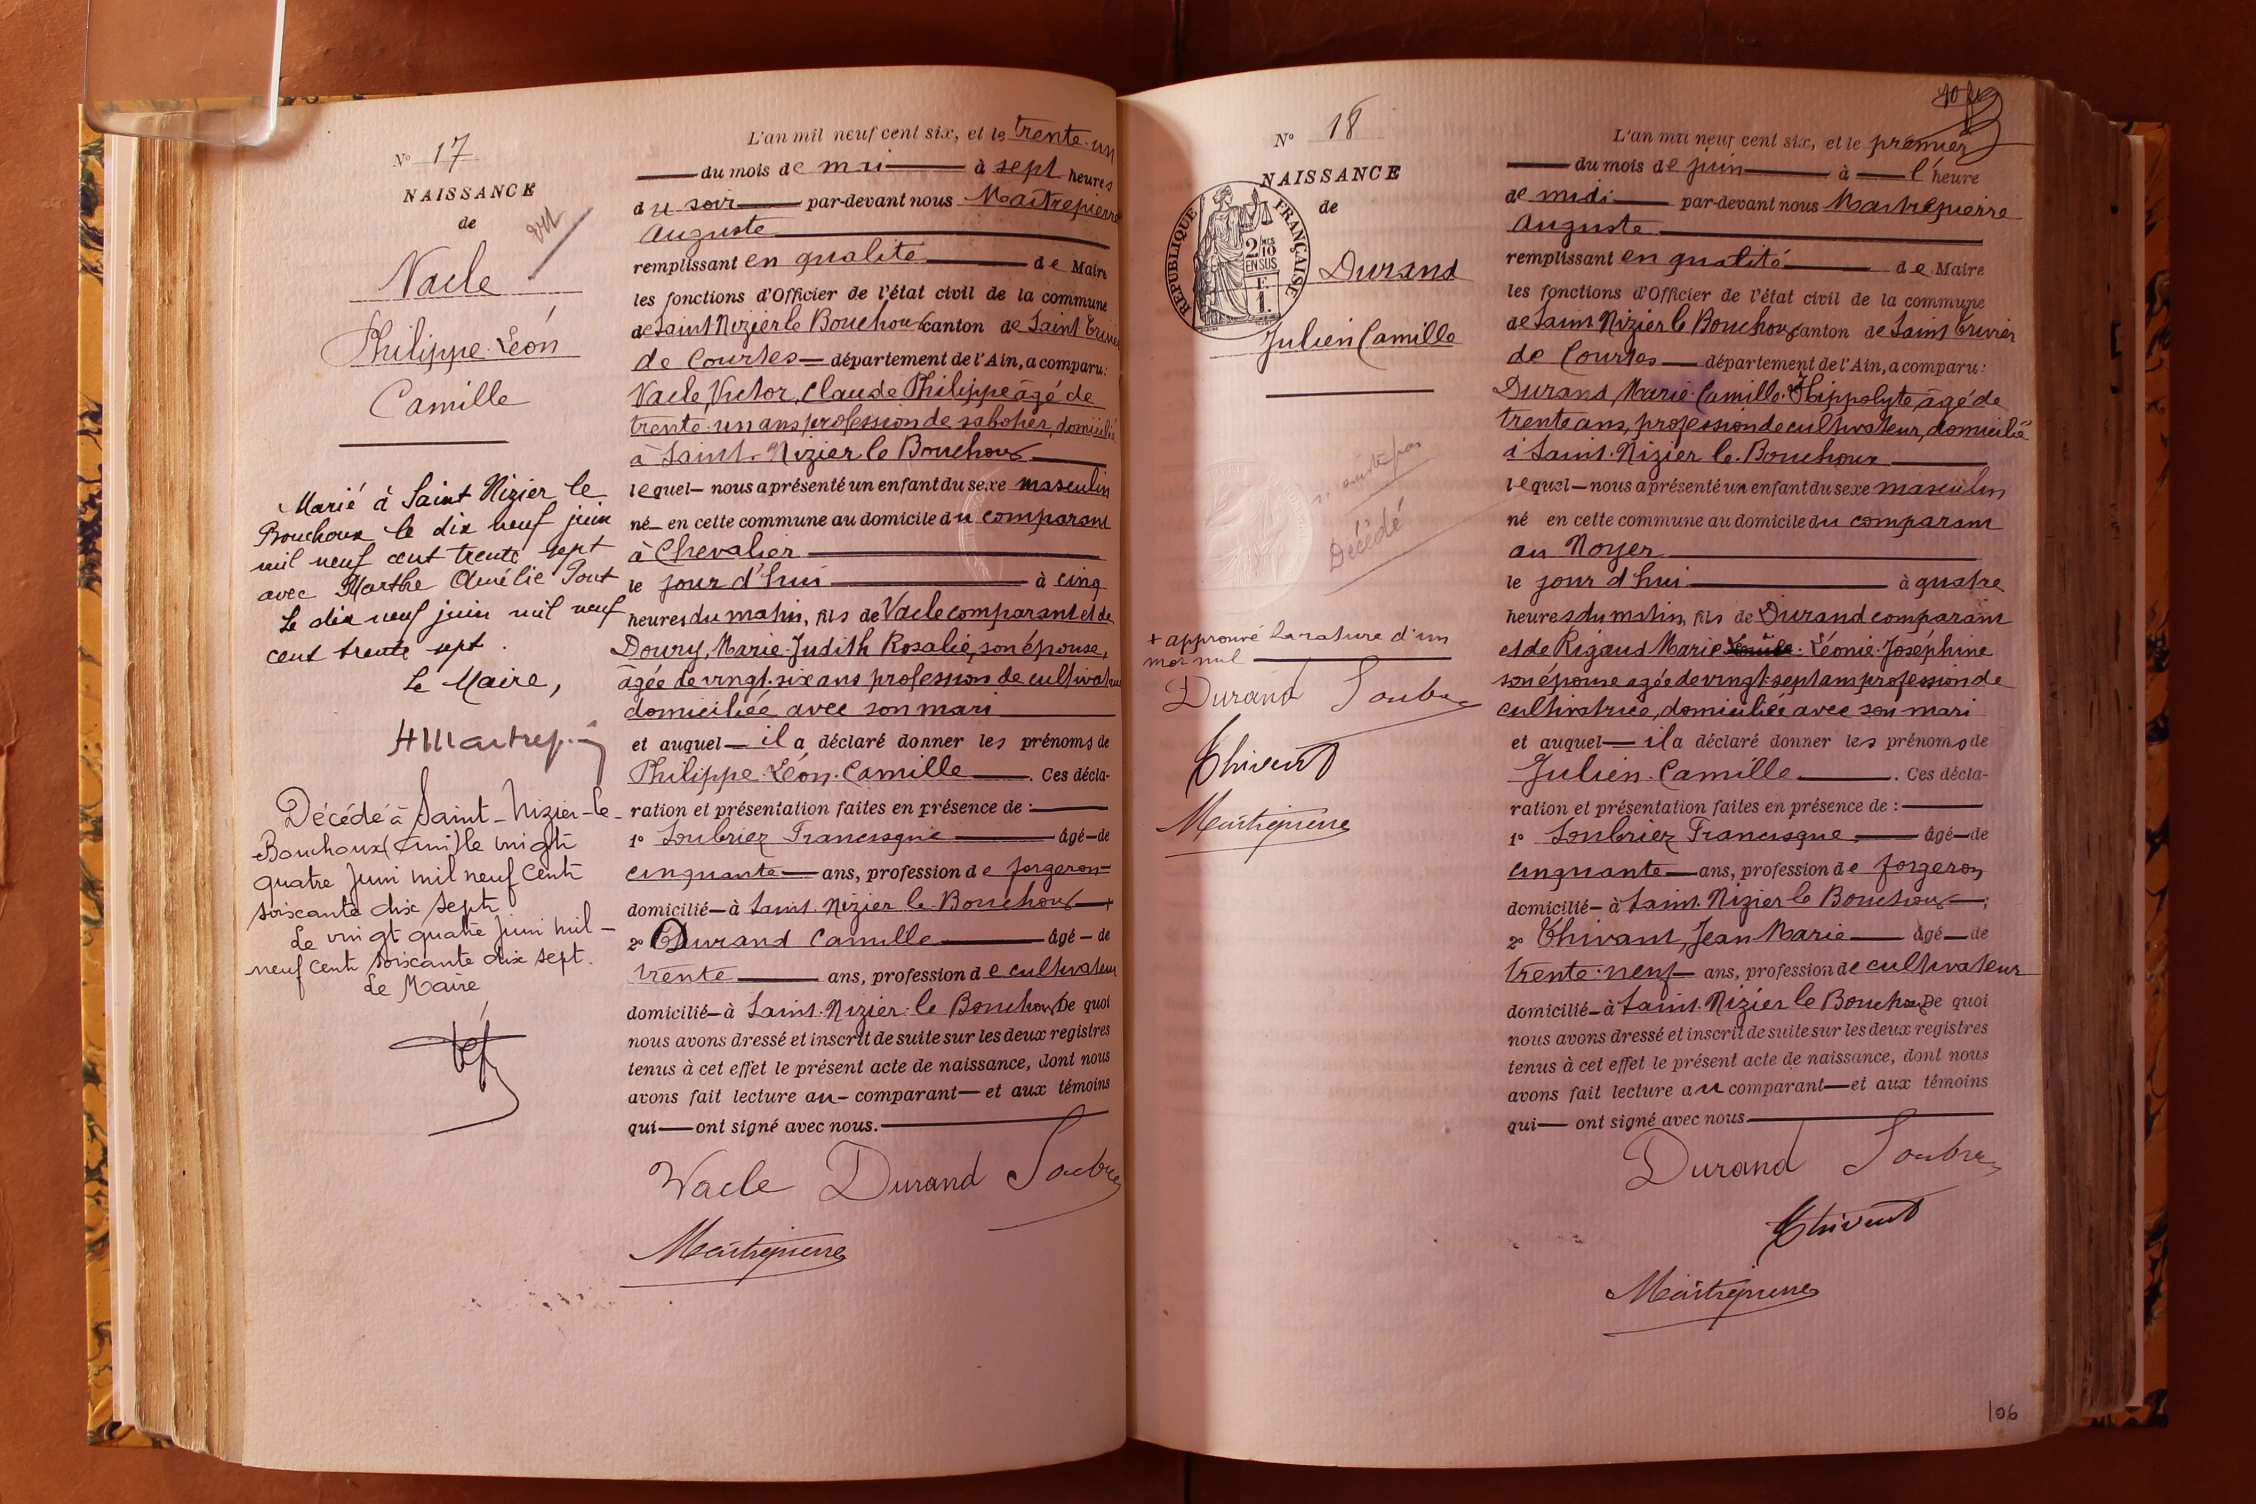 N° 17
NAISSANCE
de
vu
Vacle
Philippe-Léon
Camille
Marié à Saint Nizier le
Bouchoux le dix neuf juin
mil neuf cent trente sept
avec Marthe Amélie Pont
Le dix neuf juin mil neuf
cent trente sept.
Le Maire,
Décédé à Saint-Nizier-le-
Bouchoux (Ain) le vingt
quatre Juin mil neuf Cent
soixante dix sept
Le vingt quatre Juin mil-
neuf Cent soixante dix sept.
Le Maire
L'an mil neuf cent six, et le trente-un
du mois de mai à sept heures
du soir par-devant nous Maitrepierre
Auguste
remplissant en qualité de Maire
les fonctions d'Officier de l'état civil de la commune
de Saint Nizier le Bouchoux canton de Saint Trivier
de Courtes département de l'Ain, a comparu:
Vacle, Victor, Claude Philippe âgé de
trente-un ans profession de sabotier, domicilié
à Saint-Nizier-le Bouchoux
lequel nous a présenté un enfant du sexe masculin
né en cette commune au domicile du comparant
à Chevalier
le jour d'hui à cinq
heures du matin, fils de Vacle comparant et de
Doury, Marie-Judith Rosalie, son épouse,
âgée de vingt-six ans profession de cultivatrice
domiciliée avec son mari
et auquel il a déclaré donner les prénoms de
Philippe-Léon-Camille. Ces décla-
ration et présentation faites en présence de :
1° Soubriez Francisque âgé de
cinquante ans, profession de forgeron
domicilié à Saint-Nizier le Bouchoux
2° Durand Camille âgé de
trente ans, profession de cultivateur
domicilié à Saint-Nizier-le Bouchoux De quoi
nous avons dressé et inscrit de suite sur les deux registres
tenus à cet effet le présent acte de naissance, dont nous
avons fait lecture au comparant et aux témoins
qui ont signé avec nous.
Vacle Durand
Maitrepierre
N° 18
NAISSANCE
de
RÉPUBLIQUE FRANÇAISE
2/10
EN SUS
F.
1.
Durand
Julien Camille
Décédé
+ approuvé la rature d'un
mot nul
Durand
Thivent
Maitrepierre
L'an mil neuf cent six, et le premier
du mois de juin à l'heure
de midi par-devant nous Maitrepierre
Auguste
remplissant en qualité de Maire
les fonctions d'Officier de l'état civil de la commune
de Saint Nizier le Bouchoux canton de Saint Trivier
de Courtes département de l'Ain, a comparu:
Durand, Marie-Camille-Hippolyte, âgé de
trente ans, profession de cultivateur, domicilié
à Saint-Nizier le-Bouchoux
lequel nous a présenté un enfant du sexe masculin
né en cette commune au domicile du comparant
au Noyer
le jour d'hui à quatre
heures du matin, fils de Durand comparant
et de Rigaud Marie-Léonie-Joséphine
son épouse agée de vingt-sept ans profession de
cultivatrice, domiciliée avec son mari
et auquel il a déclaré donner les prénoms de
Julien-Camille. Ces décla-
ration et présentation faites en présence de :
1° Soubriez Francisque, âgé de
cinquante ans, profession de forgeron
domicilié à Saint-Nizier le Bouchoux ;
2° Thivant, Jean Marie âgé de
trente-neuf ans, profession de cultivateur
domicilié à Saint-Nizier le Bouchoux De quoi
nous avons dressé et inscrit de suite sur les deux registres
tenus à cet effet le présent acte de naissance, dont nous
avons fait lecture au comparant et aux témoins
qui ont signé avec nous
Durand
Thivent
Maitrepierre
106